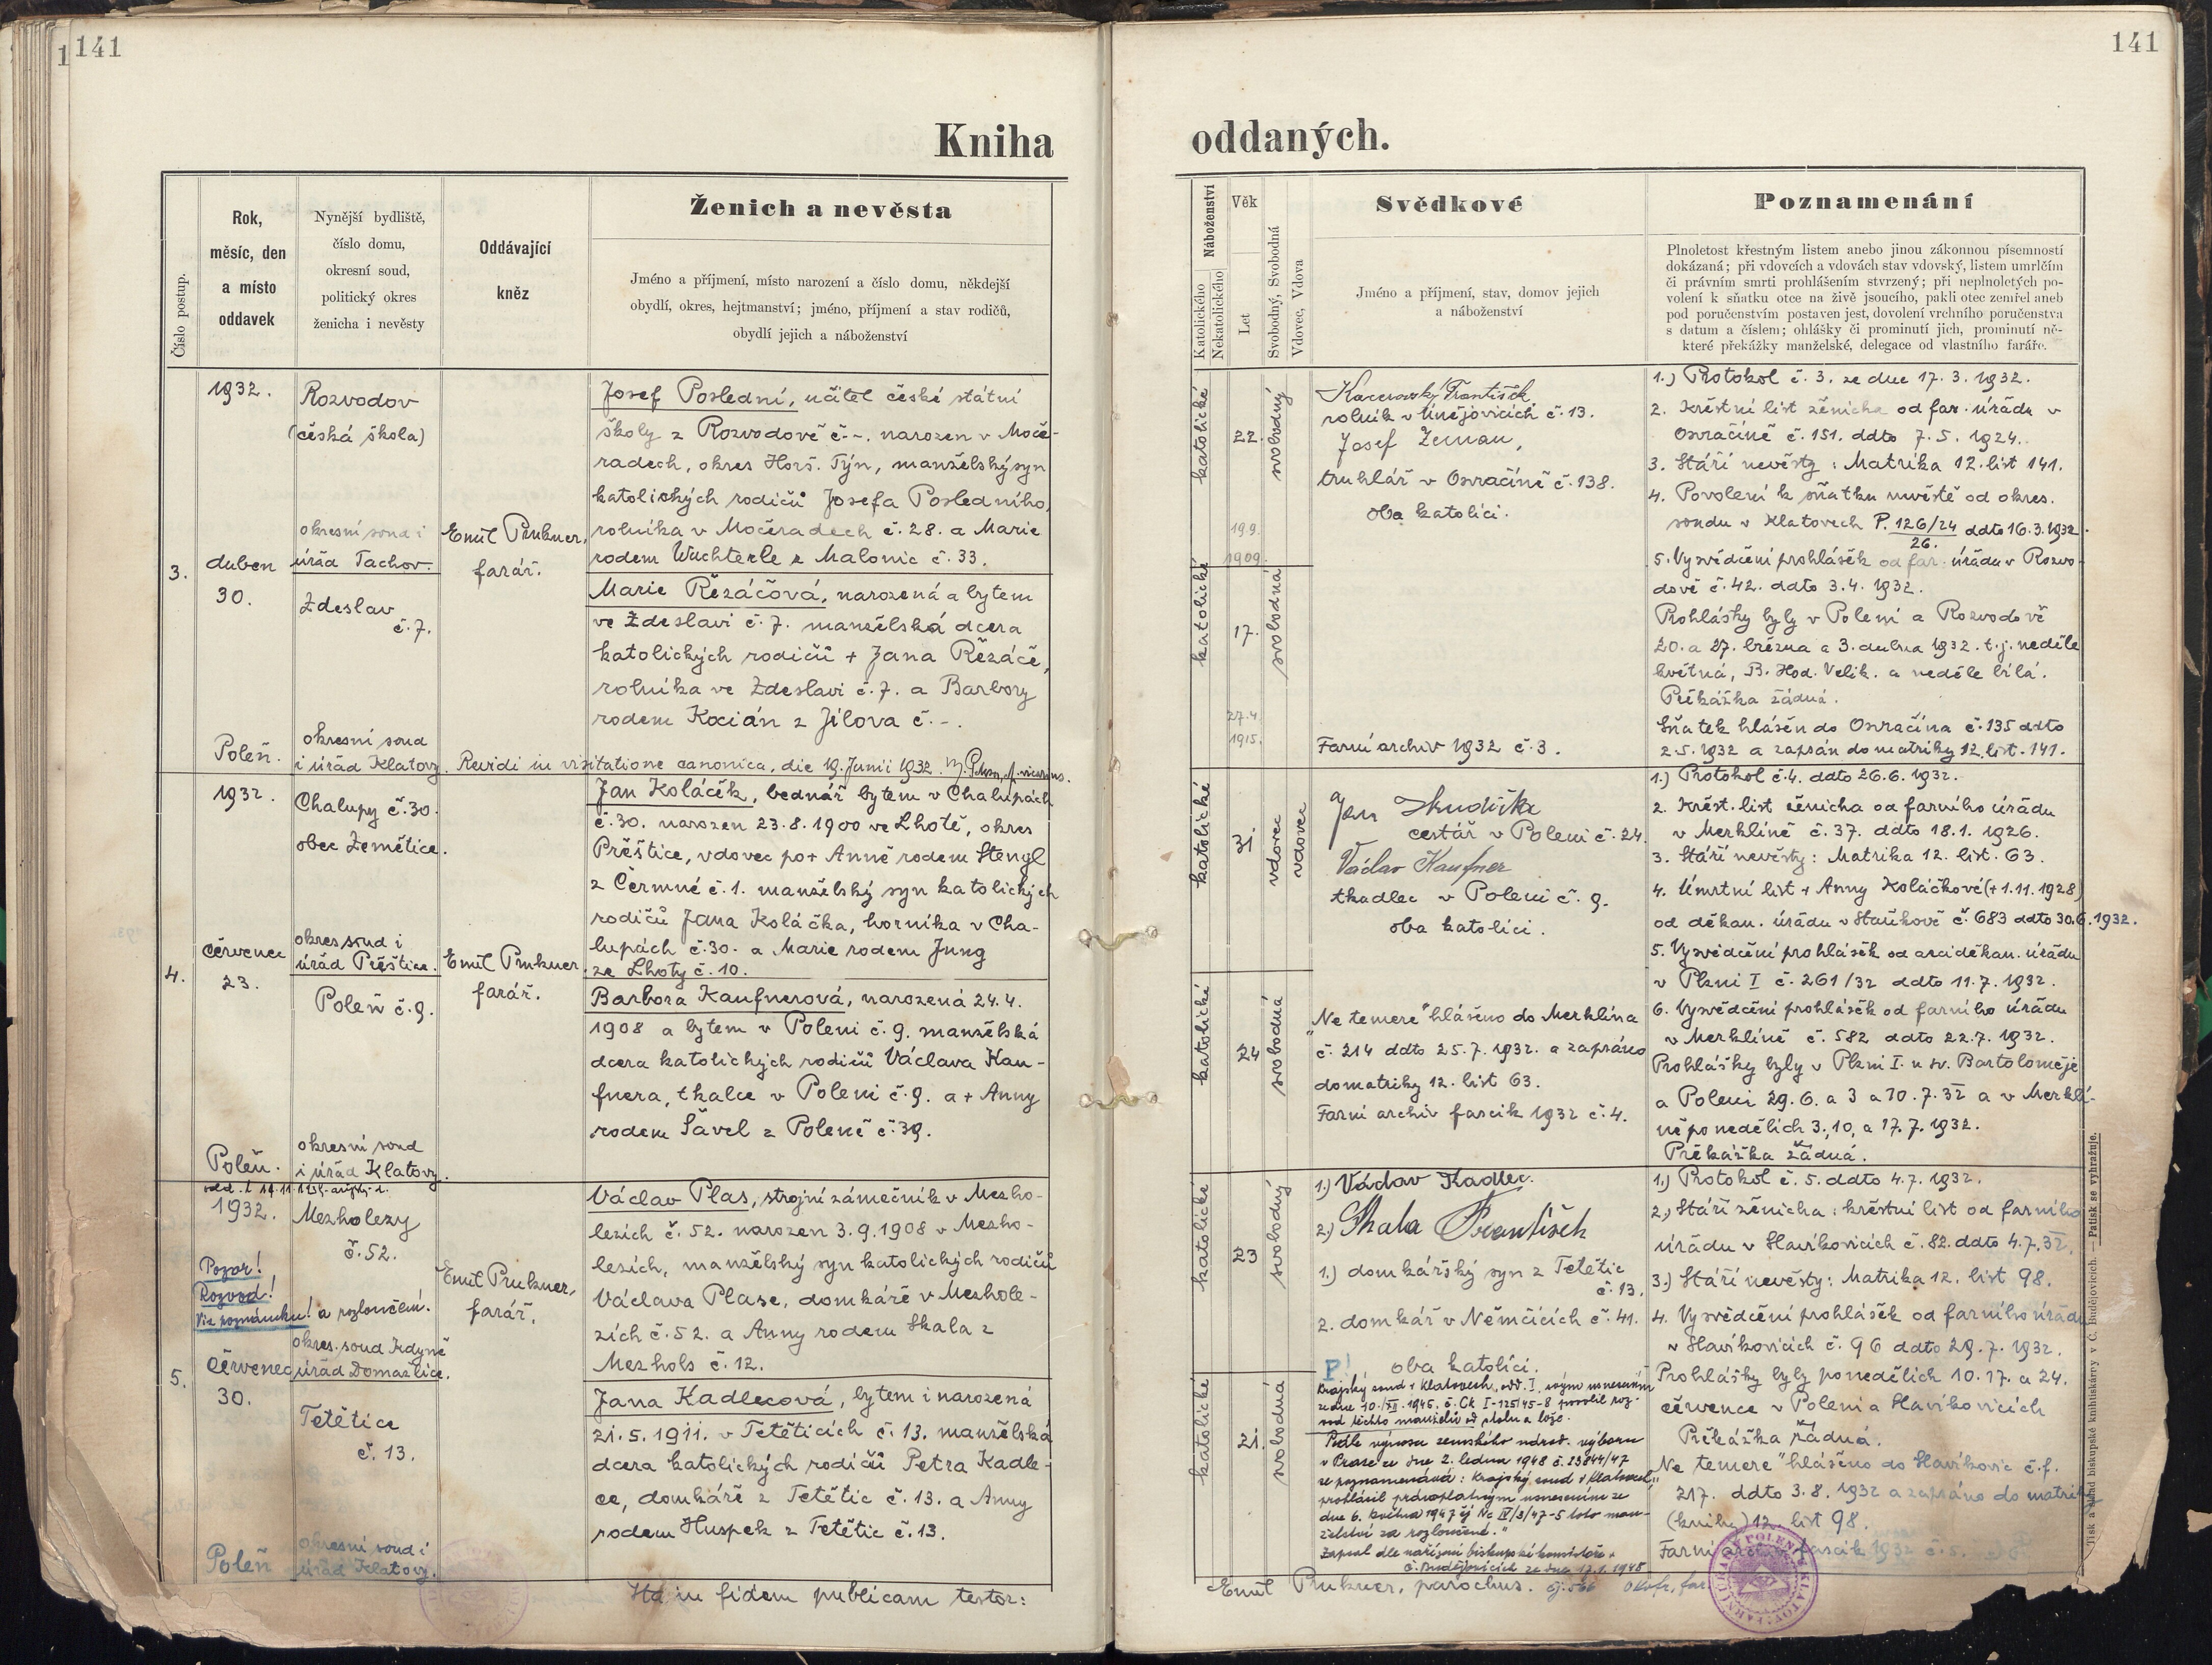 141
141
Kniha
oddaných.
Číslo postup.
Rok,
měsíc, den
a místo
oddavek
Nynější bydliště,
číslo domu,
okresní soud,
politický okres
ženicha i nevěsty
Oddávající
kněz
Ženich a nevěsta
Jméno a příjmení, místo narození a číslo domu, někdejší
obydlí, okres, hejtmanství; jméno, příjmení a stav rodičů,
obydlí jejich a náboženství
Náboženství
Katolického
Nekatolického
Věk
Let
Svobodný, Svobodná
Vdovec, Vdova
Svědkové
Jméno a příjmení, stav, domov jejich
a náboženství
Poznamenání
Plnoletost křestným listem anebo jinou zákonnou písemností
dokázaná; při vdovcích a vdovách stav vdovský, listem umrlčím
či právním smrti prohlášením stvrzený; při neplnoletých po-
volení k sňatku otce na živě jsoucího, pakli otec zemřel aneb
pod poručenstvím postaven jest, dovolení vrchního poručenstva
s datum a číslem; ohlášky či prominutí jich, prominutí ně-
které překážky manželské, delegace od vlastního faráře.
3.
1932.
duben
30.
Poleň.
Rozvodov
(česká škola)
okresní soud i
úřad Tachov.
Ždeslav
č. 7.
okresní soud
i úřad Klatovy.
Emil Prukner,
farář.
Josef Poslední, učitel české státní
školy z Rozvodově č –. narozen v Moče-
radech, okres Horš. Týn, manželský syn
katolických rodičů Josefa Posledního,
rolníka v Močeradech č. 28. a Marie
rodem Wuchterle z Malonic č. 33.
Marie Řezáčová, narozená a bytem
ve Ždeslavi č. 7. manželská dcera
katolických rodičů + Jana Řezáče,
rolníka ve Ždeslavi č. 7. a Barbory
rodem Kocián z Jílova č. –.
Revidi in visitatione canonica, die 19. Junii 1932.
katolické
22.
svobodný
19.9.
1909.
katolické
17.
svobodná
27.4.
1915.
František
rolník v Únějovicích č. 13.
Josef Zeman,
truhlář v Osvračíně č. 138.
oba katolíci.
Farní archiv 1932 č. 3.
1.) Protokol č. 3. ze dne 17. 3. 1932.
2. Křestní list ženicha od far. úřadu v
Osvračíně č. 151. ddto 7. 5. 1924.
3. Stáří nevěsty: Matrika 12. list 141.
4. Povolení k sňatku nevěstě od okres.
soudu v Klatovech P. 126/24 ddto 16. 3. 1932.
26.
5. Vysvědčení prohlášek od far. úřadu v Rozvo-
dově č. 42. ddto 3. 4. 1932.
Prohlášky byly v Poleni a Rozvodově
20. a 27. března a 3. dubna 1932. t. j. neděle
květná, B. Hod. Velik. a neděle bílá.
Překážka žádná.
Sňatek hlášen do Osvračína č. 135 ddto
2. 5. 1932 a zapsán do matriky 12. list. 141.
4.
1932.
červenec
23.
Poleň.
Chalupy č. 30.
obec Zemětice.
okres. soud i
úřad Přeštice.
Poleň č. 9.
okresní soud
i úřad Klatovy.
Emil Prukner,
farář.
Jan Koláček, bednář bytem v Chalupách
č. 30. narozen 23. 8. 1900 ve Lhotě, okres
Přeštice, vdovec po + Anně rodem Stengl
z Čermné č. 1. manželský syn katolických
rodičů Jana Koláčka, horníka v Cha-
lupách č. 30. a Marie rodem Jung
ze Lhoty č. 10.
Barbora Kaufnerová, narozená 24. 4.
1908 a bytem v Poleni č. 9. manželská
dcera katolických rodičů Václava Kau-
fnera, tkalce v Poleni č. 9. a + Anny
rodem Šavel z Poleně č. 39.
katolické
31
vdovec
vdovec
katolické
24
svobodná
Jan
cestář v Poleni č. 24.
Václav Kaufner
tkadlec v Poleni č. 9.
oba katolíci.
„Ne temere“ hlášeno do Merklína
č. 214 ddto 25. 7. 1932. a zapsáno
do matriky 12. list 63.
Farní archiv fascik 1932 č. 4.
1.) Protokol č. 4. ddto 26. 6. 1932.
2. Křest. list ženicha od farního úřadu
v Merklíně č. 37. ddto 18. 1. 1926.
3. Stáří nevěsty: Matrika 12. list. 63.
4. Úmrtní list + Anny Koláčkové (+ 1. 11. 1928)
od děkan. úřadu v Staňkově č. 683 ddto 30. 6. 1932.
5. Vysvědčení prohlášek od arciděkan. úřadu
v Plzni I č. 261/32 ddto 11. 7. 1932.
6. Vysvědčení prohlášek od farního úřadu
v Merklíně č. 582 ddto 22. 7. 1932.
Prohlášky byly v Plzni I. u sv. Bartoloměje
a Poleni 29. 6. a 3 a 10. 7. 32 a v Merklí-
ně po nedělích 3., 10. a 17. 7. 1932.
Překážka žádná.
5.
1932.
Pozor!
Rozvod!
Viz poznámku! a rozloučení.
červenec
30.
Poleň
Mezholezy
č. 52.
okres. soud Kdyně
úřad Domažlice.
Tetětice
č. 13.
okresní soud i
úřad Klatovy.
Emil Prukner,
farář.
Václav Plas, strojní zámečník v Mezho-
lezích č. 52. narozen 3. 9. 1908 v Mezho-
lezích, manželský syn katolických rodičů
Václava Plase, domkáře v Mezhole-
zích č. 52. a Anny rodem Skala z
Mezhols č. 12.
Jana Kadlecová, bytem i narozená
21. 5. 1911. v Tetěticích č. 13. manželská
dcera katolických rodičů Petra Kadle-
ce, domkáře z Tetětic č. 13. a Anny
rodem Huspek z Tetětic č. 13.
katolické
23
svobodný
katolické
21.
svobodná
1.) Václav Kadlec.
2.) Skala František
1.) domkářský syn z Tetětic
č. 13.
2. domkář v Němčicích č. 41.
oba katolíci.
Krajský soud v Klatovech, odd. I, svým usnesením
ze dne 10./XII. 1945. č. Ck I-125/45-8 povolil roz-
vod těchto manželů od stolu a lože.
Podle výnosu zemského národ. výboru
v Praze ze dne 2. ledna 1948 č. 23844/47
se poznamenává: Krajský soud v Klatovech
prohlásil právoplatným usnesením ze
dne 6. května 1947 čj Nc IV/3/47-5 toto man-
želství za rozloučené."
Zapsal dle nařízení biskupské konsistoře v
Č. Budějovicích ze dne 17. 1. 1948
1.) Protokol č. 5. ddto 4. 7. 1932.
2.) Stáří ženicha: křestní list od farního
úřadu v Slavíkovicích č. 82. ddto 4. 7. 32.
3.) Stáří nevěsty: Matrika 12. list 98.
4. Vysvědčení prohlášek od farního úřadu
v Slavíkovicích č. 96 ddto 29. 7. 1932.
Prohlášky byly po nedělích 10. 17. a 24.
července v Poleni a Slavíkovicích
Překážka žádná.
„Ne temere“ hlášeno do Slavíkovic č. j.
217. ddto 3. 8. 1932 a zapsáno do matriky
(knihy) 12. list 98.
Farní archiv fascik 1932 č. 5.
Ita in fidem publicam testor:
Emil Prukner, parochus.
Tisk a sklad biskupské knihtiskárny v Č. Budějovicích. — Patisk se vyhražuje.